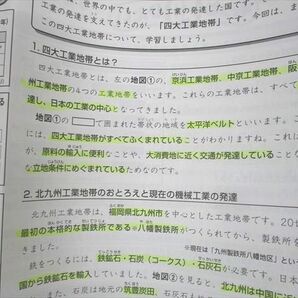 は、世界の中でも、とっても工業の発達した国です。
工業の発達を支えてきたのが、「四大工業地帯」です。今回は、ま
この四大工業地帯について、学習しましょう。
1. 四大工業地帯とは?
四大工業地帯とは、左の地図①の、京浜工業地帯、中京工業地帯、阪
州工業地帯の4つの工業地帯をいいます。これらの工業地帯は、すべて
達し、日本の工業の中心となってきました。
地図①の で囲まれた帯状の地域を太平洋ベルトといいます。
には、四大工業地帯がすべてふくまれていることがわかりますね。これ
が、原料の輸入に便利なことや、大消費地に近く交通が発達していること
な立地条件にめぐまれているためです。
2. 北九州工業地帯のおとろえと現在の機械工業の発達
北九州工業地帯は、福岡県北九州市を中心とした工業地帯です。20世
最初の本格的な製鉄所である※八幡製鉄所がつくられてから、製鉄所を
きました。
※現在は「九州製鉄所八幡地区」とい
鉄をつくるには、鉄鉱石・石炭(コークス)・石灰石が必
国から鉄鉱石を輸入していました。地図②を見ると、北九州は中国に
石炭は地元の筑豊炭田、